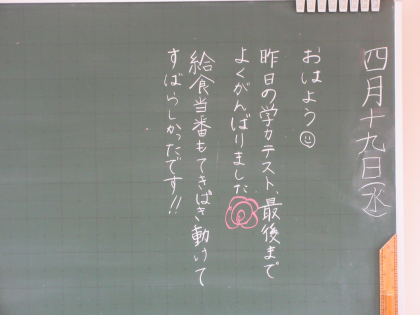 四月十九日(水)
おはよう☺
昨日の学力テスト、最後まで
よくがんばりました
給食当番もてきぱき動いて
すばらしかったです!!